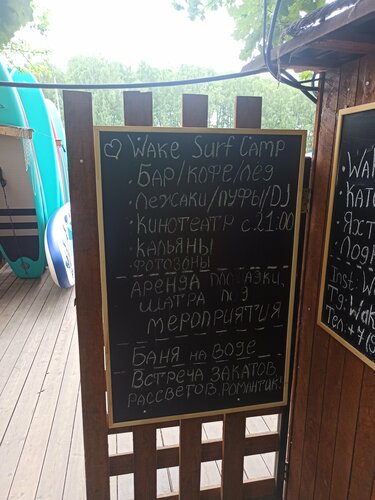 ♡ Wake Surf Camp
· Бар/кофе/лёд
· Лежаки/пуфы/DJ
· Кинотеатр с 21:00
· Кальяны
· Фотозоны
Аренда площадки,
шатра
мероприятия
Баня на воде
Встреча закатов,
рассветов, романтик!
Wak
Кате
Яхт
Лодк
Inst: W
Tg: Wake
Тел: +7(9